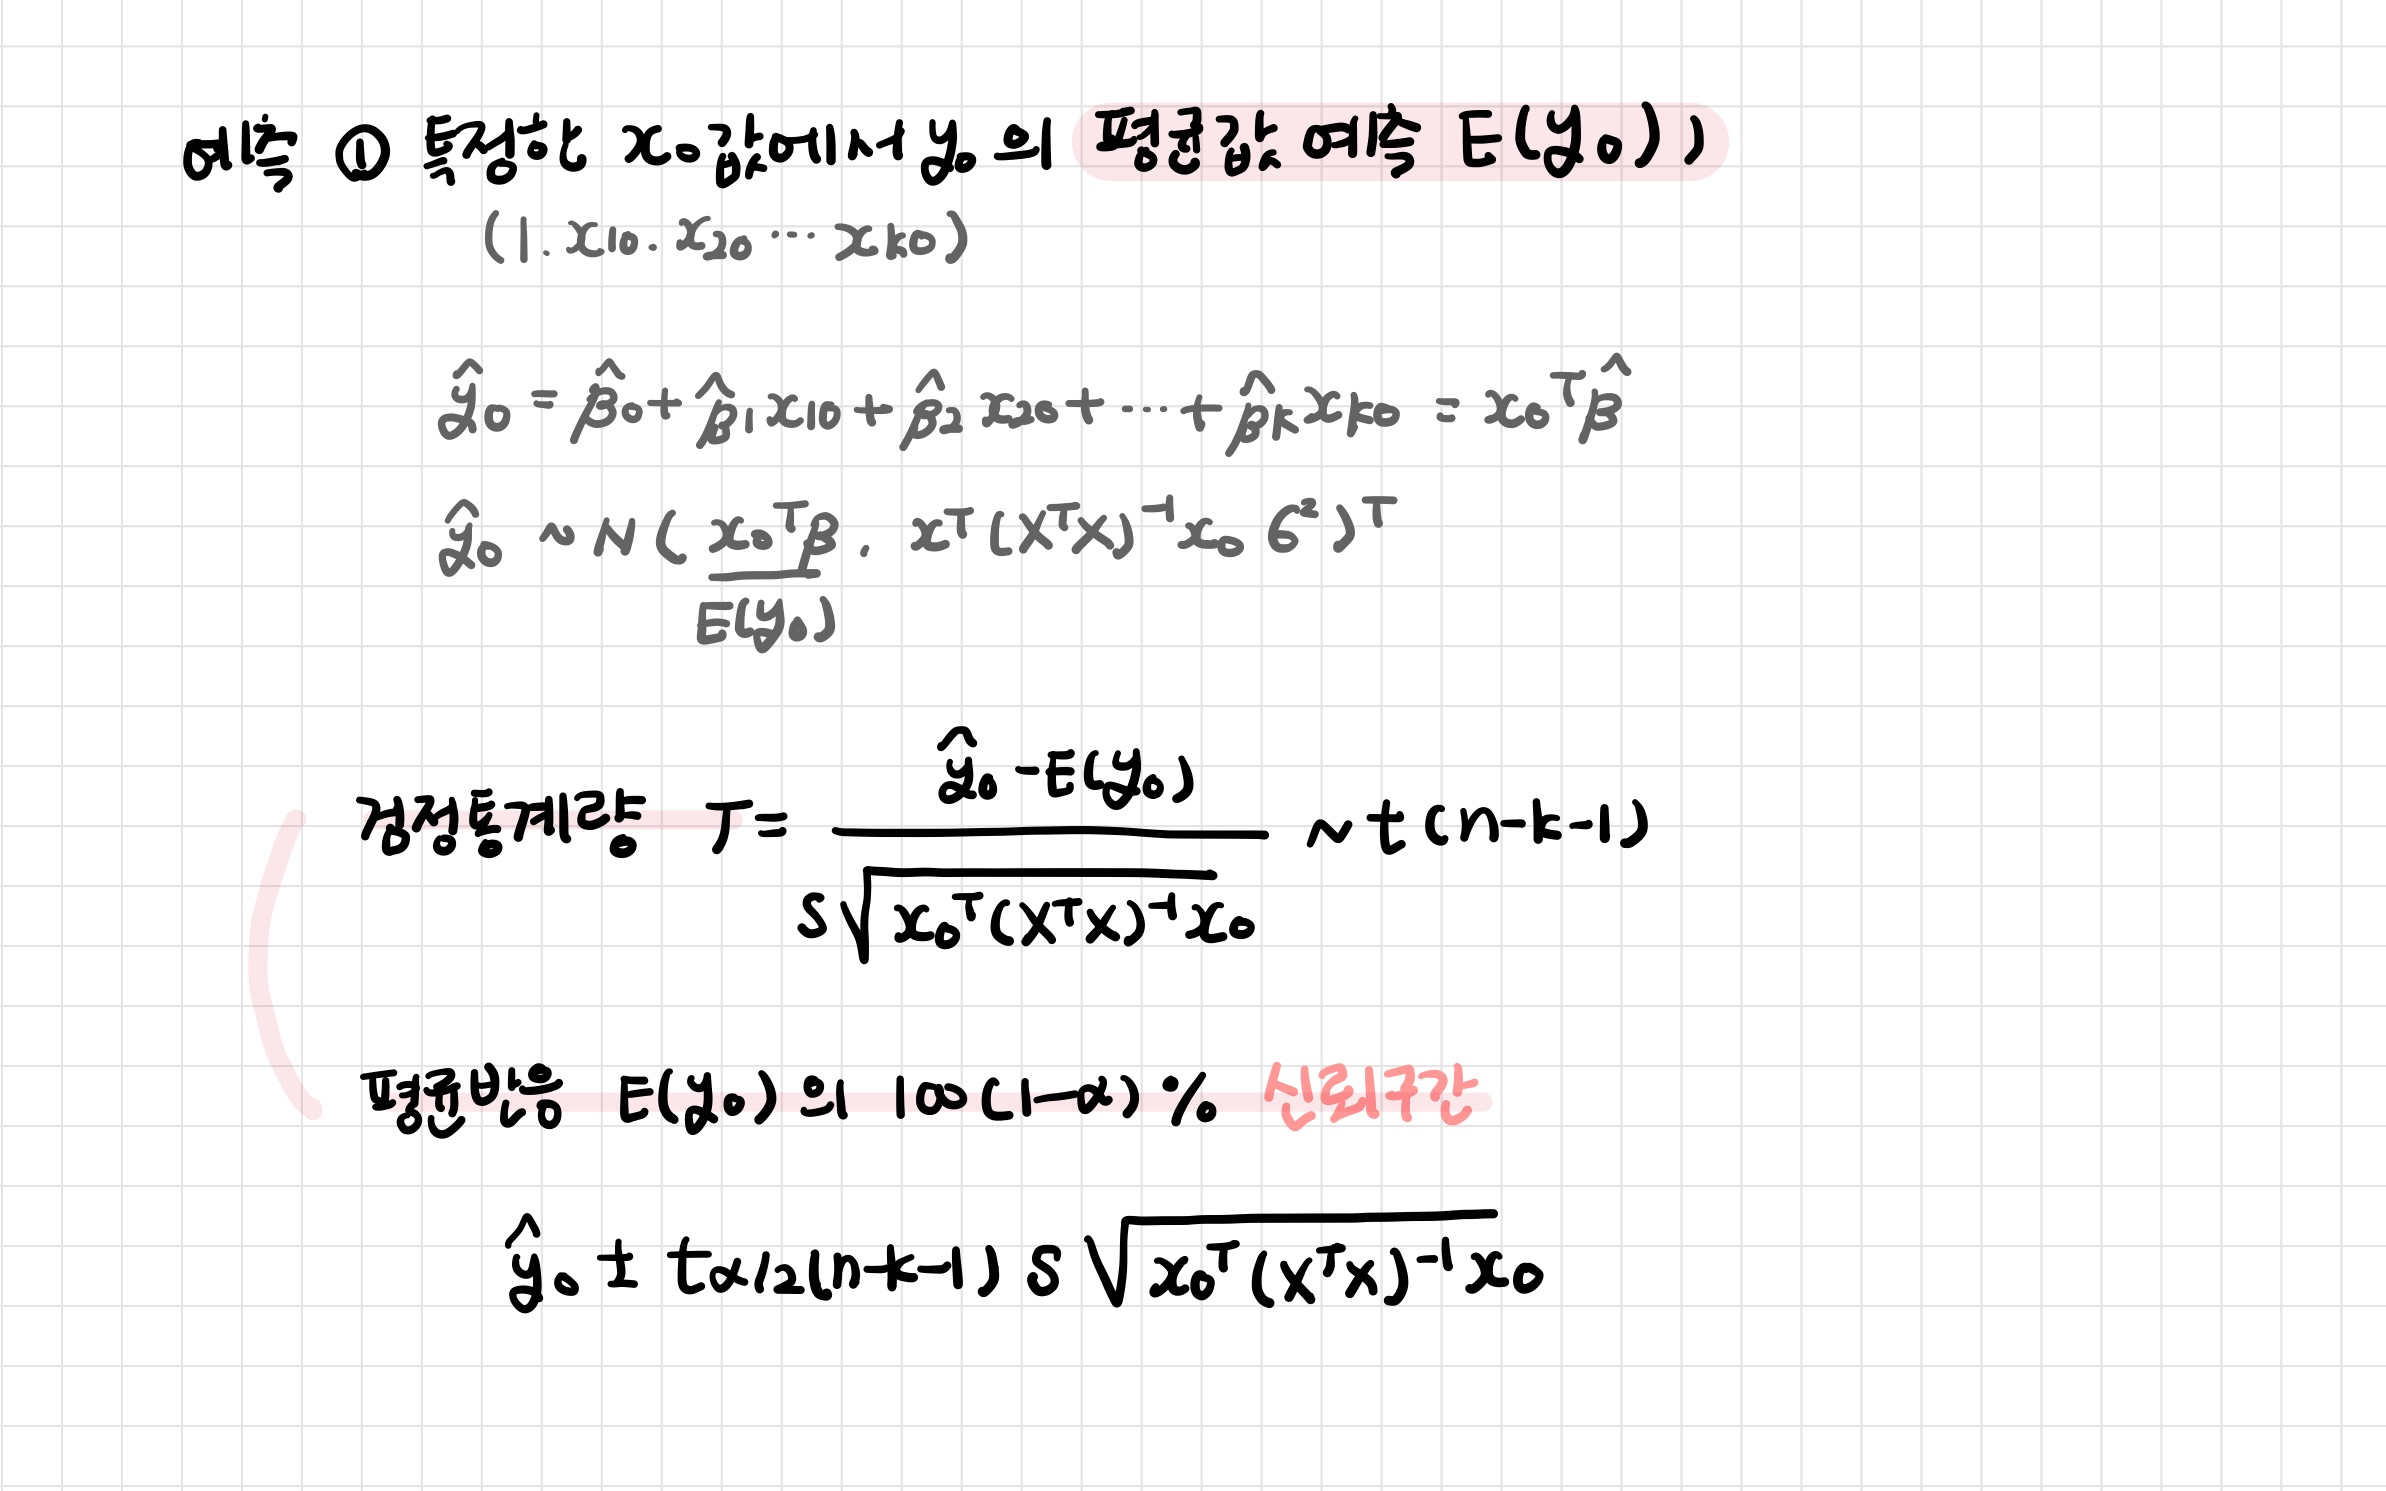 예측 ① 특정한 x₀값에서 y₀의 평균값 예측 E(y₀))
(1. x₁₀. x₂₀ ··· xₖ₀)
ŷ₀ = β̂₀ + β̂₁x₁₀ + β̂₂x₂₀ + ··· + β̂ₖxₖ₀ = x₀ᵀβ̂
ŷ₀ ~ N(x₀ᵀβ. xᵀ(XᵀX)⁻¹x₀ σ²)ᵀ
E(y₀)
검정통계량 T = (ŷ₀ - E(y₀)) / (s√(x₀ᵀ(XᵀX)⁻¹x₀)) ~ t(n-k-1)
평균반응 E(y₀)의 100(1-α)% 신뢰구간
ŷ₀ ± t_α/₂(n-k-1) s√(x₀ᵀ(XᵀX)⁻¹x₀)